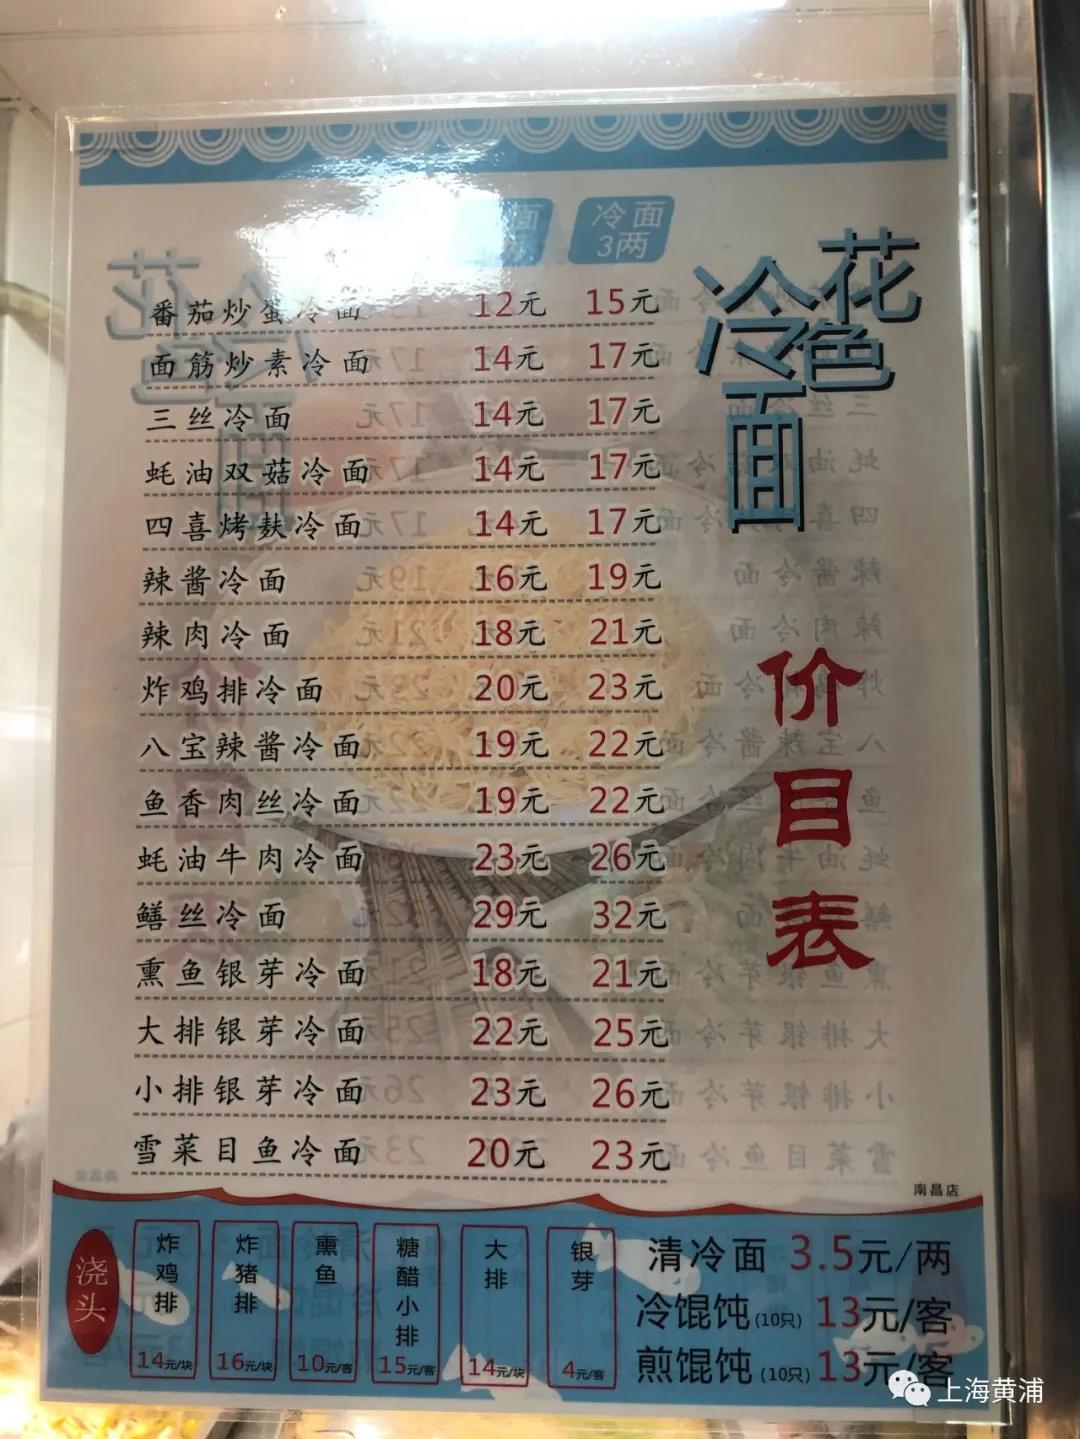 花色
冷面
价目表
面
冷面
3两
番茄炒蛋冷面 12元 15元
面筋炒素冷面 14元 17元
三丝冷面 14元 17元
蚝油双菇冷面 14元 17元
四喜烤麸冷面 14元 17元
辣酱冷面 16元 19元
辣肉冷面 18元 21元
炸鸡排冷面 20元 23元
八宝辣酱冷面 19元 22元
鱼香肉丝冷面 19元 22元
蚝油牛肉冷面 23元 26元
鳝丝冷面 29元 32元
熏鱼银芽冷面 18元 21元
大排银芽冷面 22元 25元
小排银芽冷面 23元 26元
雪菜目鱼冷面 20元 23元
南昌店
浇头
炸鸡排 14元/块
炸猪排 16元/块
熏鱼 10元/客
糖醋小排 15元/客
大排 14元/块
银芽 4元/客
清冷面 3.5元/两
冷馄饨(10只) 13元/客
煎馄饨(10只) 13元/客
上海黄浦